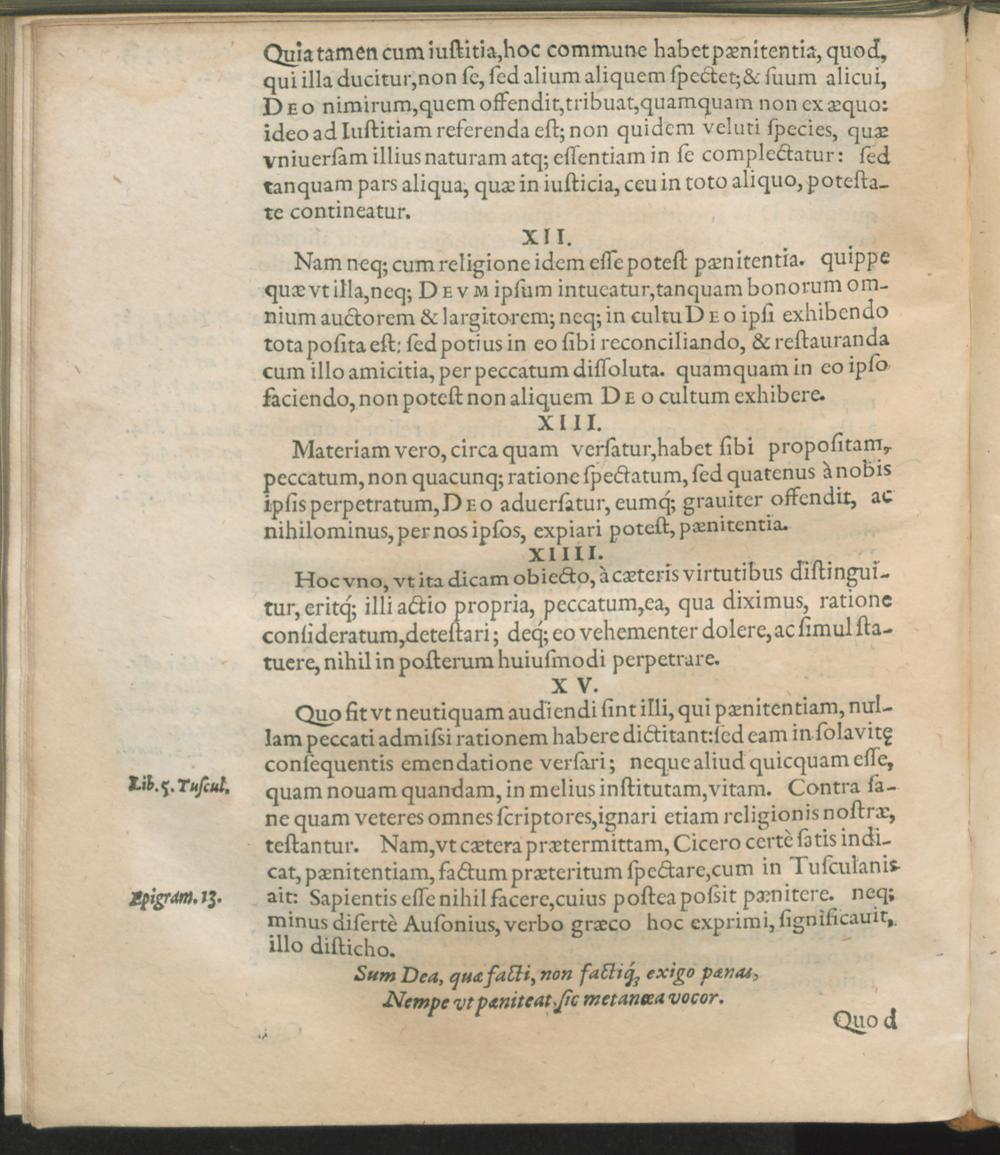 Quia tamen cum iuſtitia,hoc commune habet pænitentia, quod,
qui illa ducitur,non ſe, ſed alium aliquem ſpectet;& ſuum alicui,
DEO nimirum,quem offendit,tribuat,quamquam non ex æquo:
ideo ad Iuſtitiam referenda eſt; non quidem veluti ſpecies, quæ
vniuerſam illius naturam atq; eſſentiam in ſe complectatur: ſed
tanquam pars aliqua, quæ in iuſticia, ceu in toto aliquo, poteſta-
te contineatur.
XII.
Nam neq; cum religione idem eſſe poteſt pænitentia. quippe
quæ vt illa,neq; DEVM ipſum intueatur,tanquam bonorum om-
nium auctorem & largitorem; neq; in cultu DEO ipſi exhibendo
tota poſita eſt: ſed potius in eo ſibi reconciliando, & reſtauranda
cum illo amicitia, per peccatum diſſoluta. quamquam in eo ipſo
faciendo, non poteſt non aliquem DEO cultum exhibere.
XIII.
Materiam vero, circa quam verſatur,habet ſibi propoſitam,
peccatum, non quacunq; ratione ſpectatum, ſed quatenus à nobis
ipſis perpetratum, DEO aduerſatur, eumq́; grauiter offendit, ac
nihilominus, per nos ipſos, expiari poteſt, pænitentia.
XIIII.
Hoc vno, vt ita dicam obiecto, à cæteris virtutibus diſtingui-
tur, eritq́; illi actio propria, peccatum,ea, qua diximus, ratione
conſideratum,deteſtari; deq́; eo vehementer dolere, ac ſimul ſta-
tuere, nihil in poſterum huiuſmodi perpetrare.
XV.
Quo fit vt neutiquam audiendi ſint illi, qui pænitentiam, nul-
lam peccati admiſsi rationem habere dictitant:ſed eam in ſola vitę
conſequentis emendatione verſari; neque aliud quicquam eſſe,
Lib. 5. Tuſcul.
quam nouam quandam, in melius inſtitutam,vitam. Contra ſa-
ne quam veteres omnes ſcriptores,ignari etiam religionis noſtræ,
teſtantur. Nam,vt cætera prætermittam, Cicero certè ſatis indi-
cat, pænitentiam, factum præteritum ſpectare,cum in Tuſculanis
Epigram. 13.
ait: Sapientis eſſe nihil facere,cuius poſtea poſsit pænitere. neq;
minus diſertè Auſonius, verbo græco hoc exprimi, ſignificauit,
illo diſticho.
Sum Dea, quæ facti, non factiq́; exigo pænas,
Nempe vt pæniteat,ſic metanœa vocor.
Quod